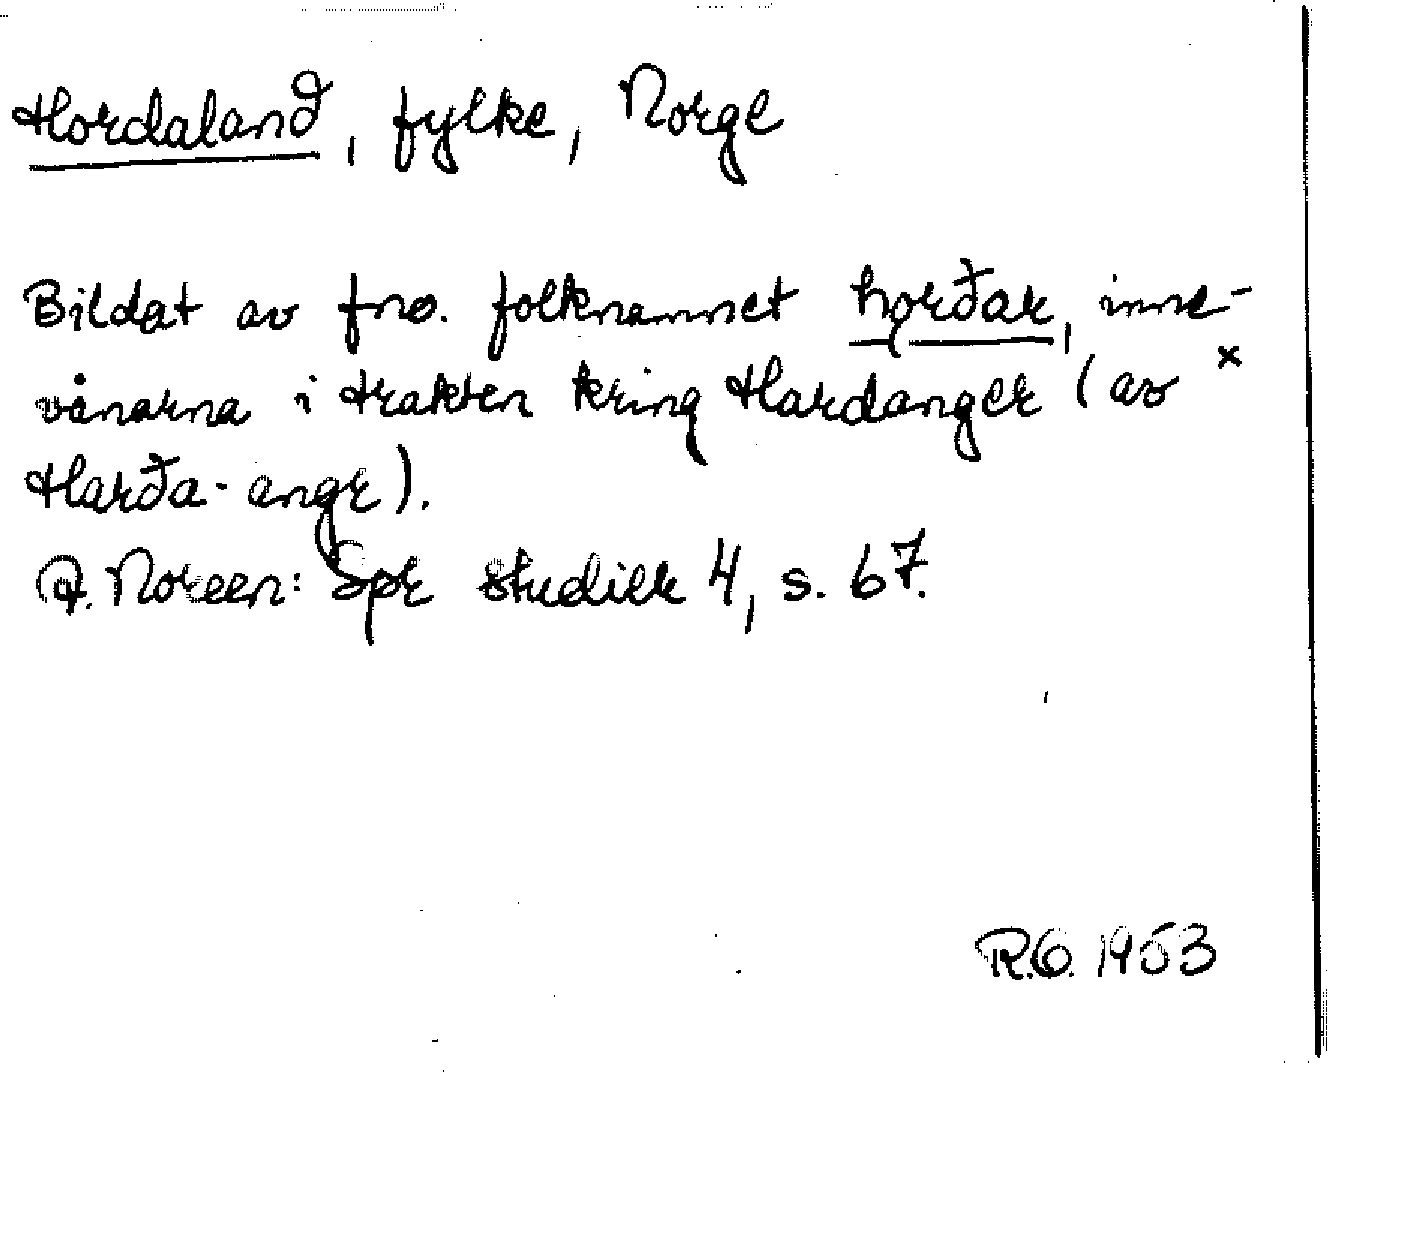 Hordaland, fylke, Norge
Bildat av fno. folknamnet hǫrðar, inne-
vånarna i trakten kring Hardanger (av ×
Harða-angr).
A. Noreen: Spr studier 4, s. 67.
R.O. 1953